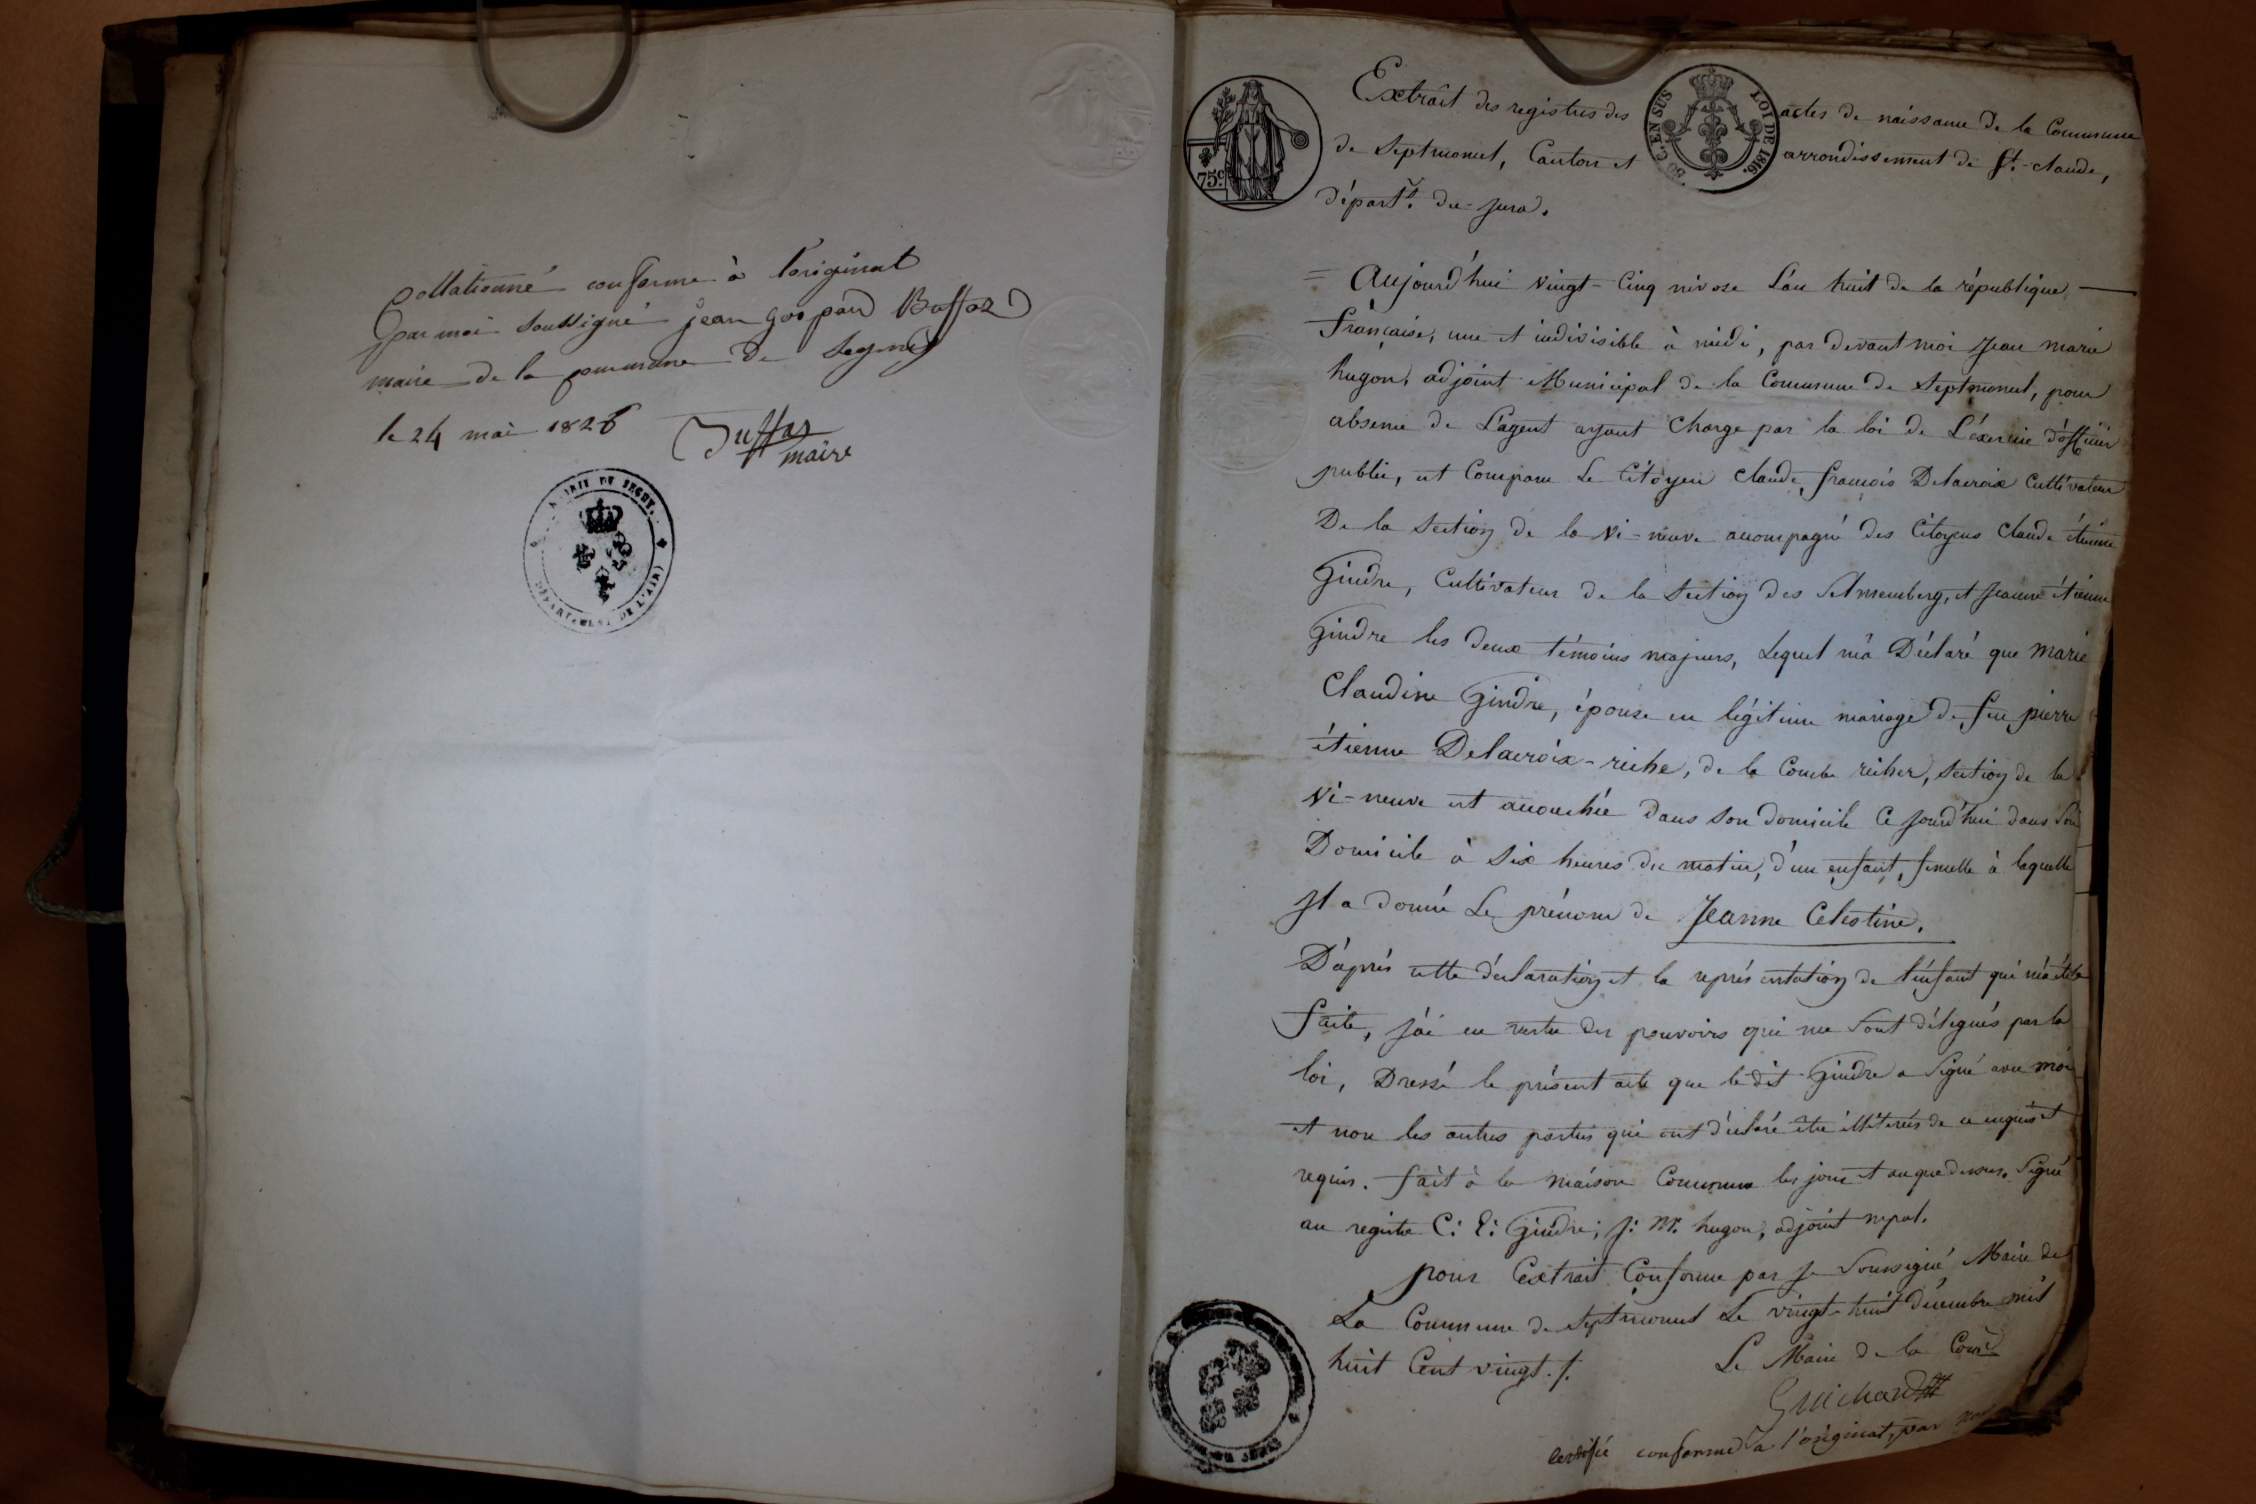 Collationné conforme à l'original
par moi soussigné jean gaspard Buffaz
maire de la commune de Segny
le 24 mai 1826
Buffaz
maire
MAIRIE DE SEGNY.
DÉPARTEMENT DE L'AIN
75c.
50 C. EN SUS
LOI DE 1816.
Extrait des registres des actes de naissance de la Commune
de Septmoncel, Canton et arrondissement de St. claude,
départt. du jura.
= Aujourd'hui vingt-cinq nivose L'an huit de la république
française, une et indivisible à midi, par devant moi Jean marie
hugon, adjoint Municipal de la Commune de Septmoncel, pour
absence de L'agent ayant charge par la loi de L'éxercice d'officier
public, est Comparu Le Citoyen claude françois Delacroix Cultivateur
De la Section de la vi-neuve accompagné des Citoyens Claude étienne
Gindre, Cultivateur de la Section des et Jeanne étienne
Gindre les deux témoins majeurs, Lequel m'a Déclaré que marie
Claudine Gindre, épouse en légitime mariage de feu pierre
étienne Delacroix-riche, de la Combe richer, Section de la
vi-neuve est accouchée dans son domicile Ce jourd'hui dans Son
Domicile à Six heures du matin, d'un enfant, femelle à laquelle
Il a donné Le prénom de Jeanne Célestine.
D'après cette déclaration et la représentation de l'enfant qui m'a été
faite, j'ai en vertu des pouvoirs qui me Sont délégués par la
loi, Dressé le présent acte que le dit Gindre a Signé avec moi
et non les autres parties qui ont déclaré être illitérés de ce enquis et
requis. fait à la maison Commune les jour et an que dessus. Signé
au registre C: E: Gindre; J: M. hugon, adjoint mpal.
pour Extrait Conforme par Je Soussigné Maire de
La Commune de Septmoncel Le vingt-huit décembre mil
huit Cent vingt./.
Le Maire de la Comne
Guichard
certifié conforme à l'original, par